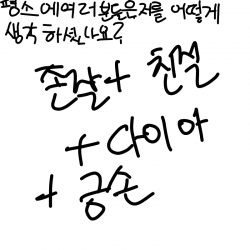 평소에여러분들은저를 어떻게
생각하셨나요?
존잘+ 친절
+다이아
+ 공손